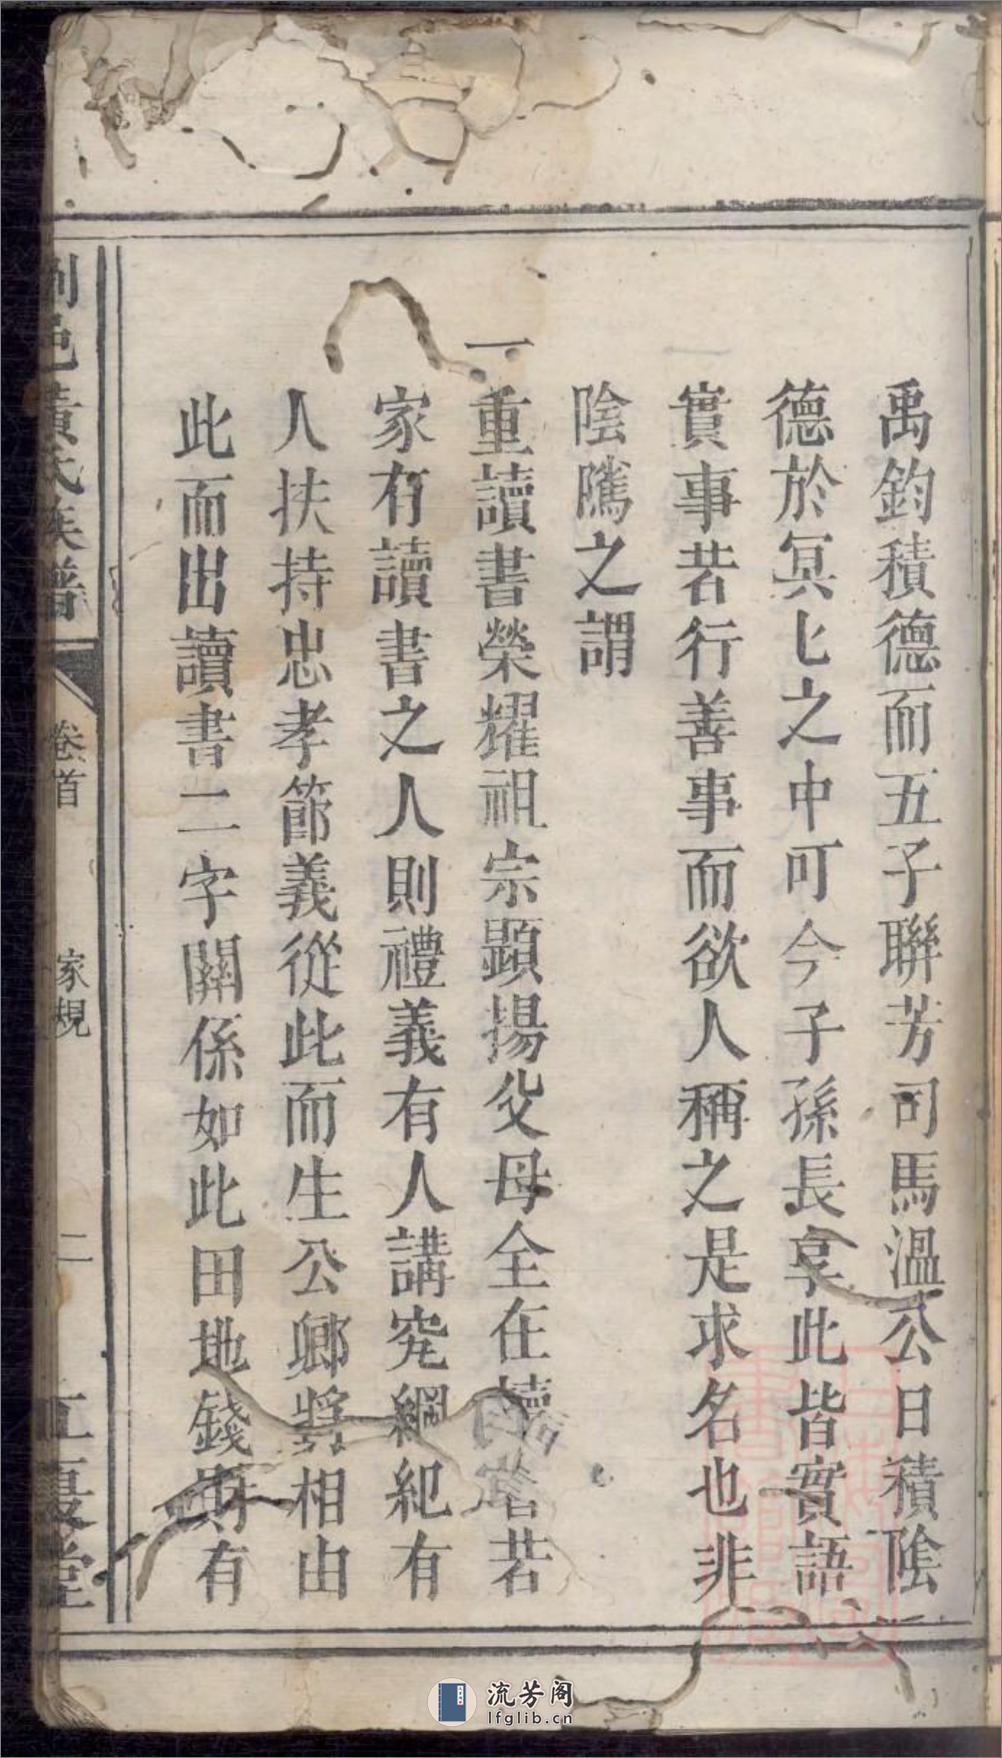 禹鈞積德而五子聯芳司馬溫公曰積陰
德於冥匕之中可令子孫長享此皆實語
實事若行善事而欲人稱之是求名也非
陰隲之謂
一重讀書榮耀祖宗顯揚父母全在讀書若
家有讀書之人則禮義有人講究綱紀有
人扶持忠孝節義從此而生公卿將相由
此而出讀書二字關係如此田地錢財有
邑黃氏族譜
卷首
家規
二
五夏堂
流芳阁
lfglib.cn